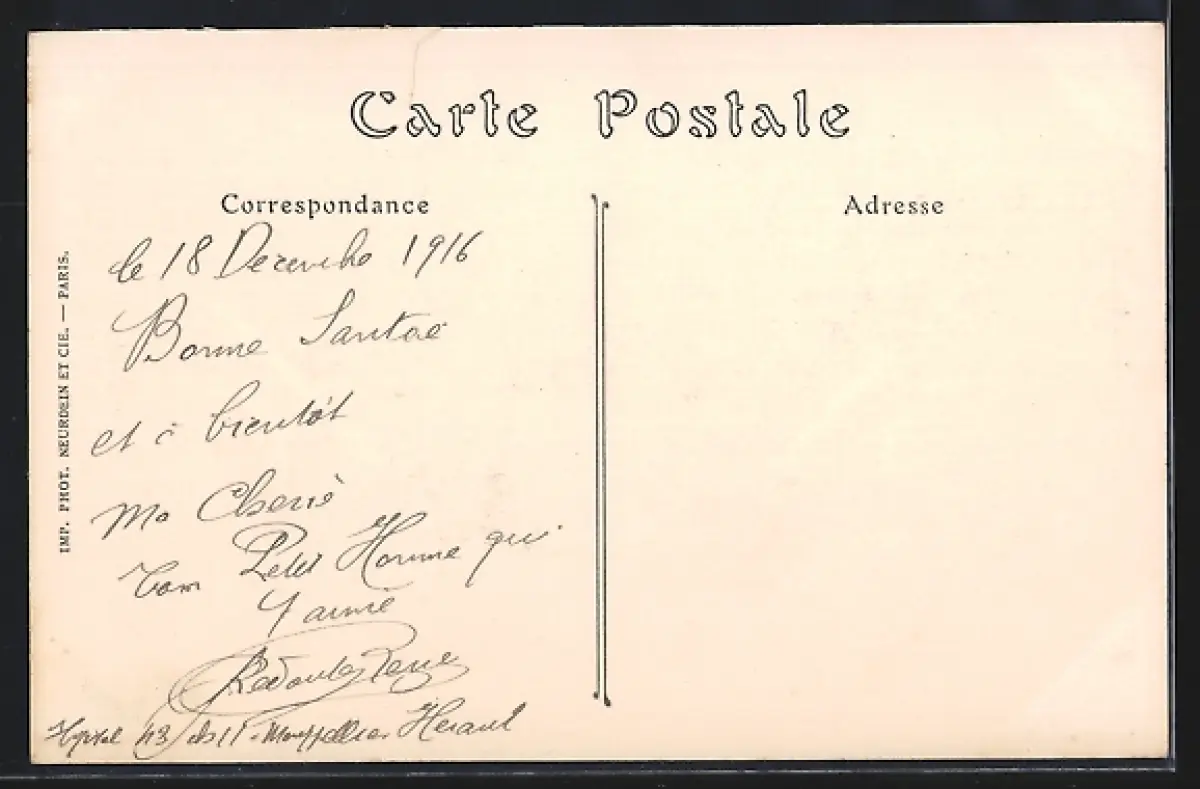 Carte Postale
Correspondance
Adresse
le 18 Decembre 1916
Bonne Santae
et à bientôt
Ma Cherie
Ton Petit Homme qui
t'aime
René
Hopital 43 Montpellier Herault
IMP. PHOT. NEURDEIN ET CIE. — PARIS.